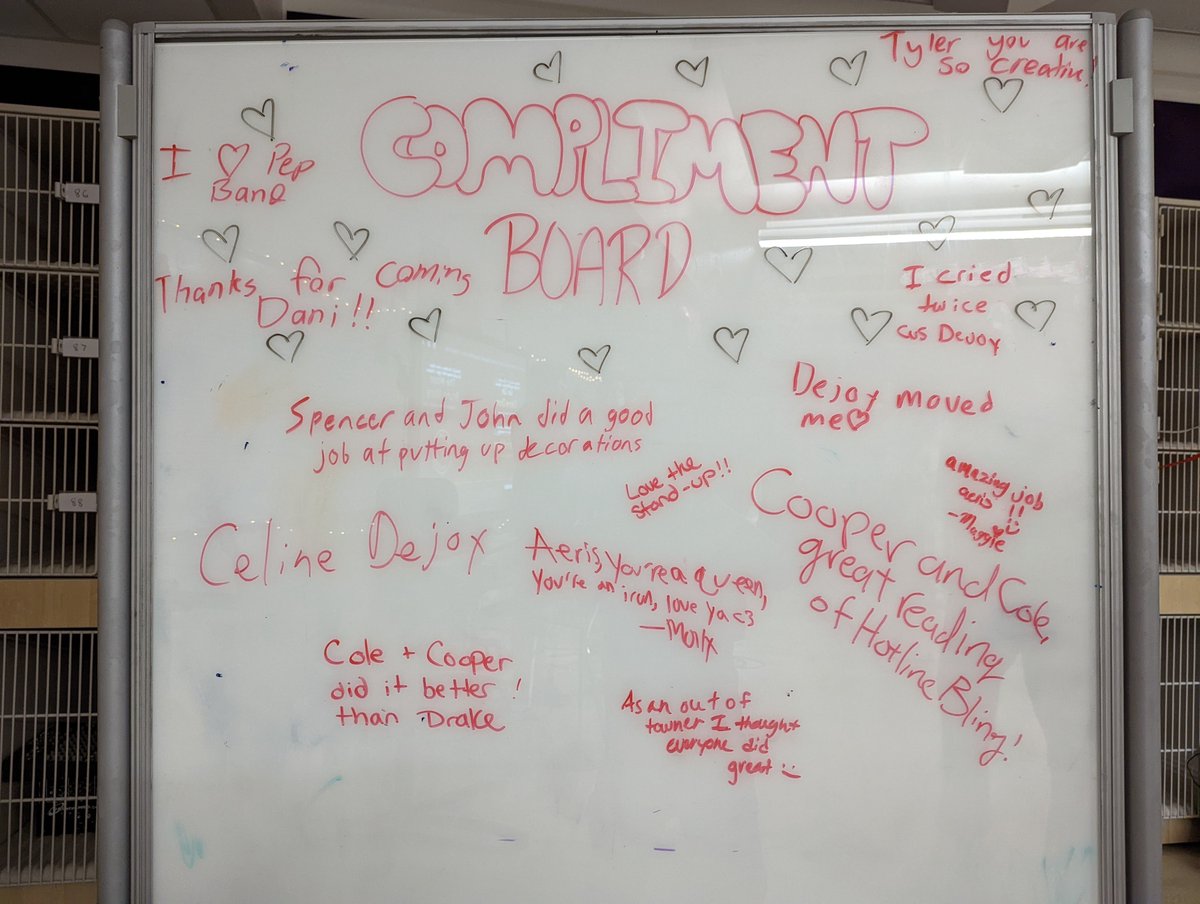 Tyler you are
so creative!
COMPLIMENT
BOARD
I ♡ Pep
Band
Thanks for coming
Dani!!
I cried
twice
cus Devoy
Dejoy moved
me♡
Spencer and John did a good
job at putting up decorations
Love the
stand-up!!
amazing job
aeris !!
-Maggie
Celine Dejoy
Aeris, you're a queen,
you're an icon, love ya <3
—Molly
Cooper and Cole,
great reading
of Hotline Bling!
Cole + Cooper
did it better!
than Drake
As an out of
towner I thought
everyone did
great :)
86
87
88